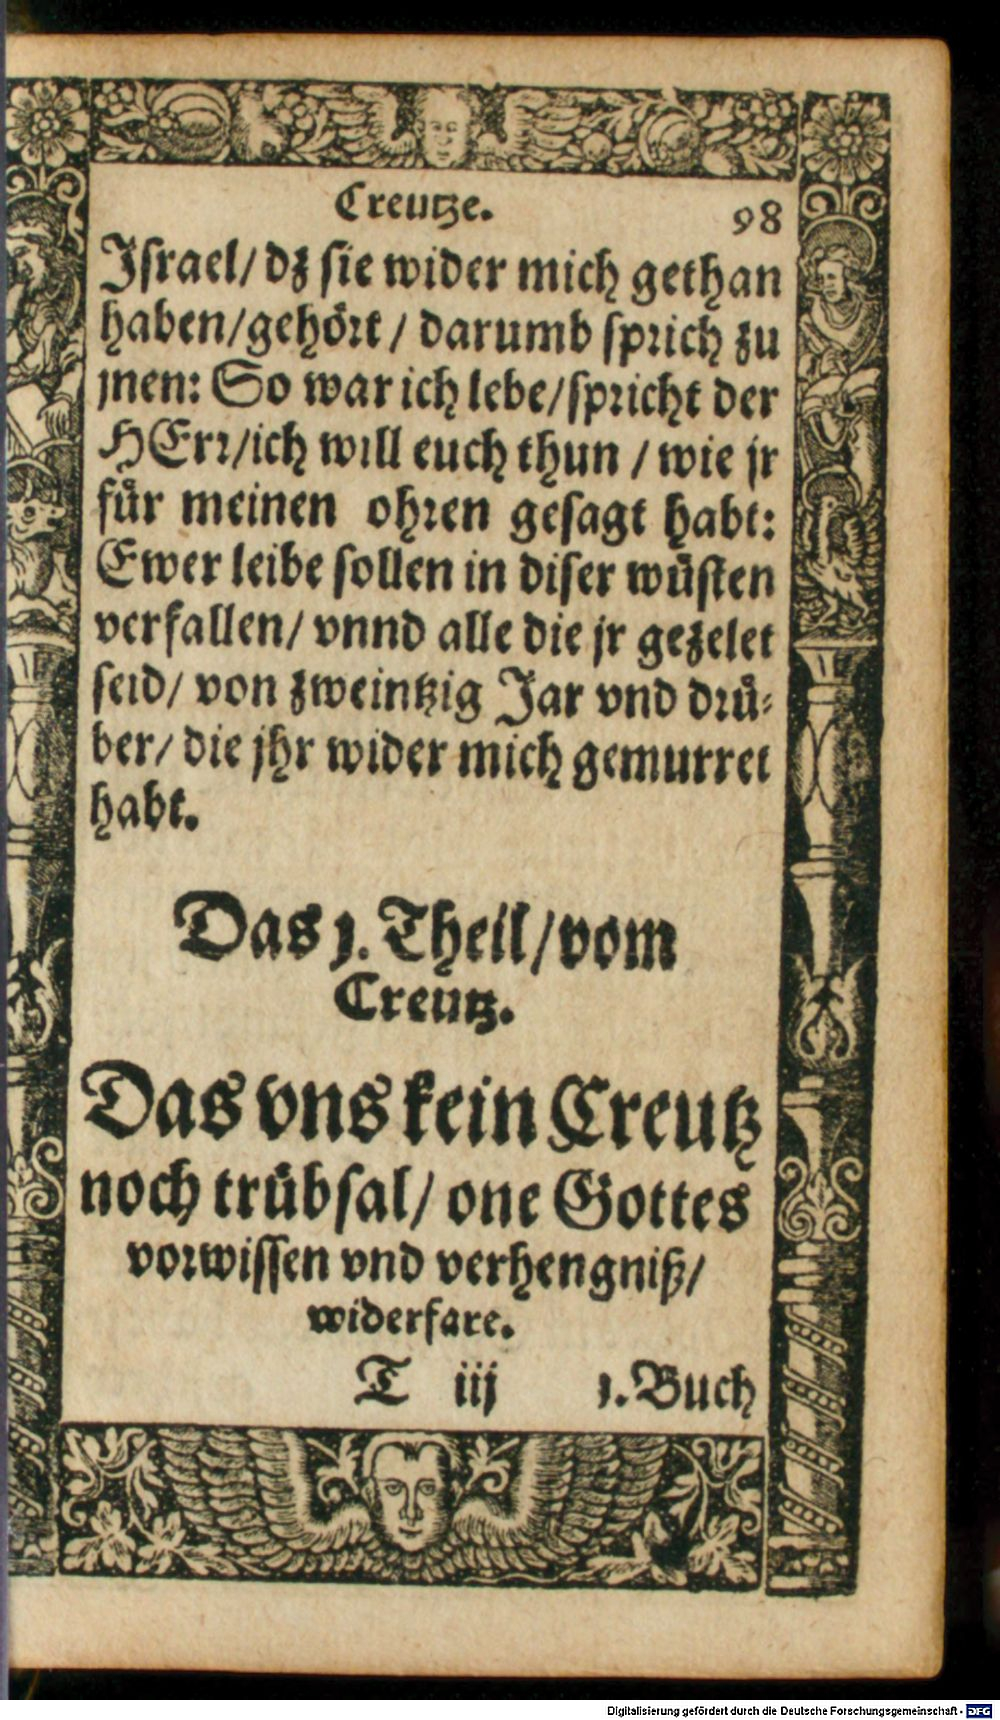 Creutze. 98
Iſrael/ dz ſie wider mich gethan
haben/gehoͤrt / darumb ſprich zu
jnen: So war ich lebe/ſpricht der
HErr/ich will euch thun / wie jr
fuͤr meinen ohren geſagt habt:
Ewer leibe ſollen in diſer wuͤſten
verfallen/ vnnd alle die jr gezelet
ſeid/ von zweintzig Jar vnd druͤ⸗
ber/ die jhr wider mich gemurret
habt.
Das j. Theil/vom
Creutz.
Das vns kein Creutz
noch truͤbſal/ one Gottes
vorwiſſen vnd verhengniß/
widerfare.
T iij j.Buch
Digitalisierung gefördert durch die Deutsche Forschungsgemeinschaft - DFG